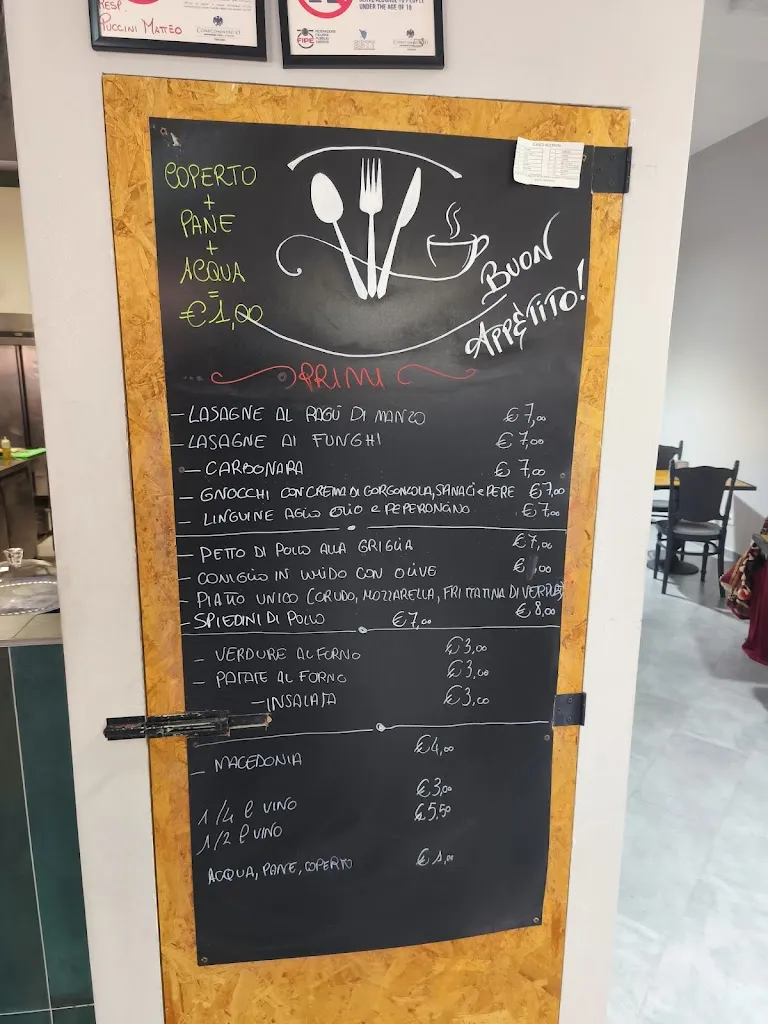 RESP
PUCCINI MATTEO
CONFCOMMERCIO
UNDER THE AGE OF 18
FIPE
COPERTO
+
PANE
+
ACQUA
=
€1,00
BUON
APPETITO!
PRIMI
- LASAGNE AL RAGÙ DI MANZO €7,00
- LASAGNE AI FUNGHI €7,00
- CARBONARA €7,00
- GNOCCHI CON CREMA DI GORGONZOLA, SPINACI e PERE €7,00
- LINGUINE AGLIO OLIO e PEPERONCINO €7,00
- PETTO DI POLLO ALLA GRIGLIA €7,00
- CONIGLIO IN UMIDO CON OLIVE € ,00
- PIATTO UNICO (CRUDO, MOZZARELLA, FRITTATINA DI VERDURE) €8,00
- SPIEDINI DI POLLO €7,00
- VERDURE AL FORNO €3,00
- PATATE AL FORNO €3,00
- INSALATA €3,00
- MACEDONIA €4,00
1/4 l VINO €3,00
1/2 l VINO €5,50
ACQUA, PANE, COPERTO €1,00